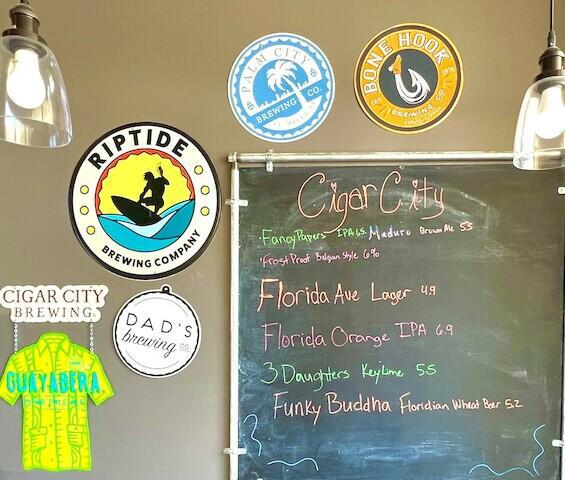 PALM CITY
BREWING CO.
FT. MYERS, FL
BONE HOOK
BREWING CO.
RIPTIDE
BREWING COMPANY
CIGAR CITY
BREWING
GUAYABERA
DAD'S
brewing co.
Cigar City
Fancy Papers IPA 6.5 Maduro Brown Ale 5.5
Frost Proof Belgian Style 6%
Florida Ave Lager 4.9
Florida Orange IPA 6.9
3 Daughters Key Lime 5.5
Funky Buddha Floridian Wheat Beer 5.2